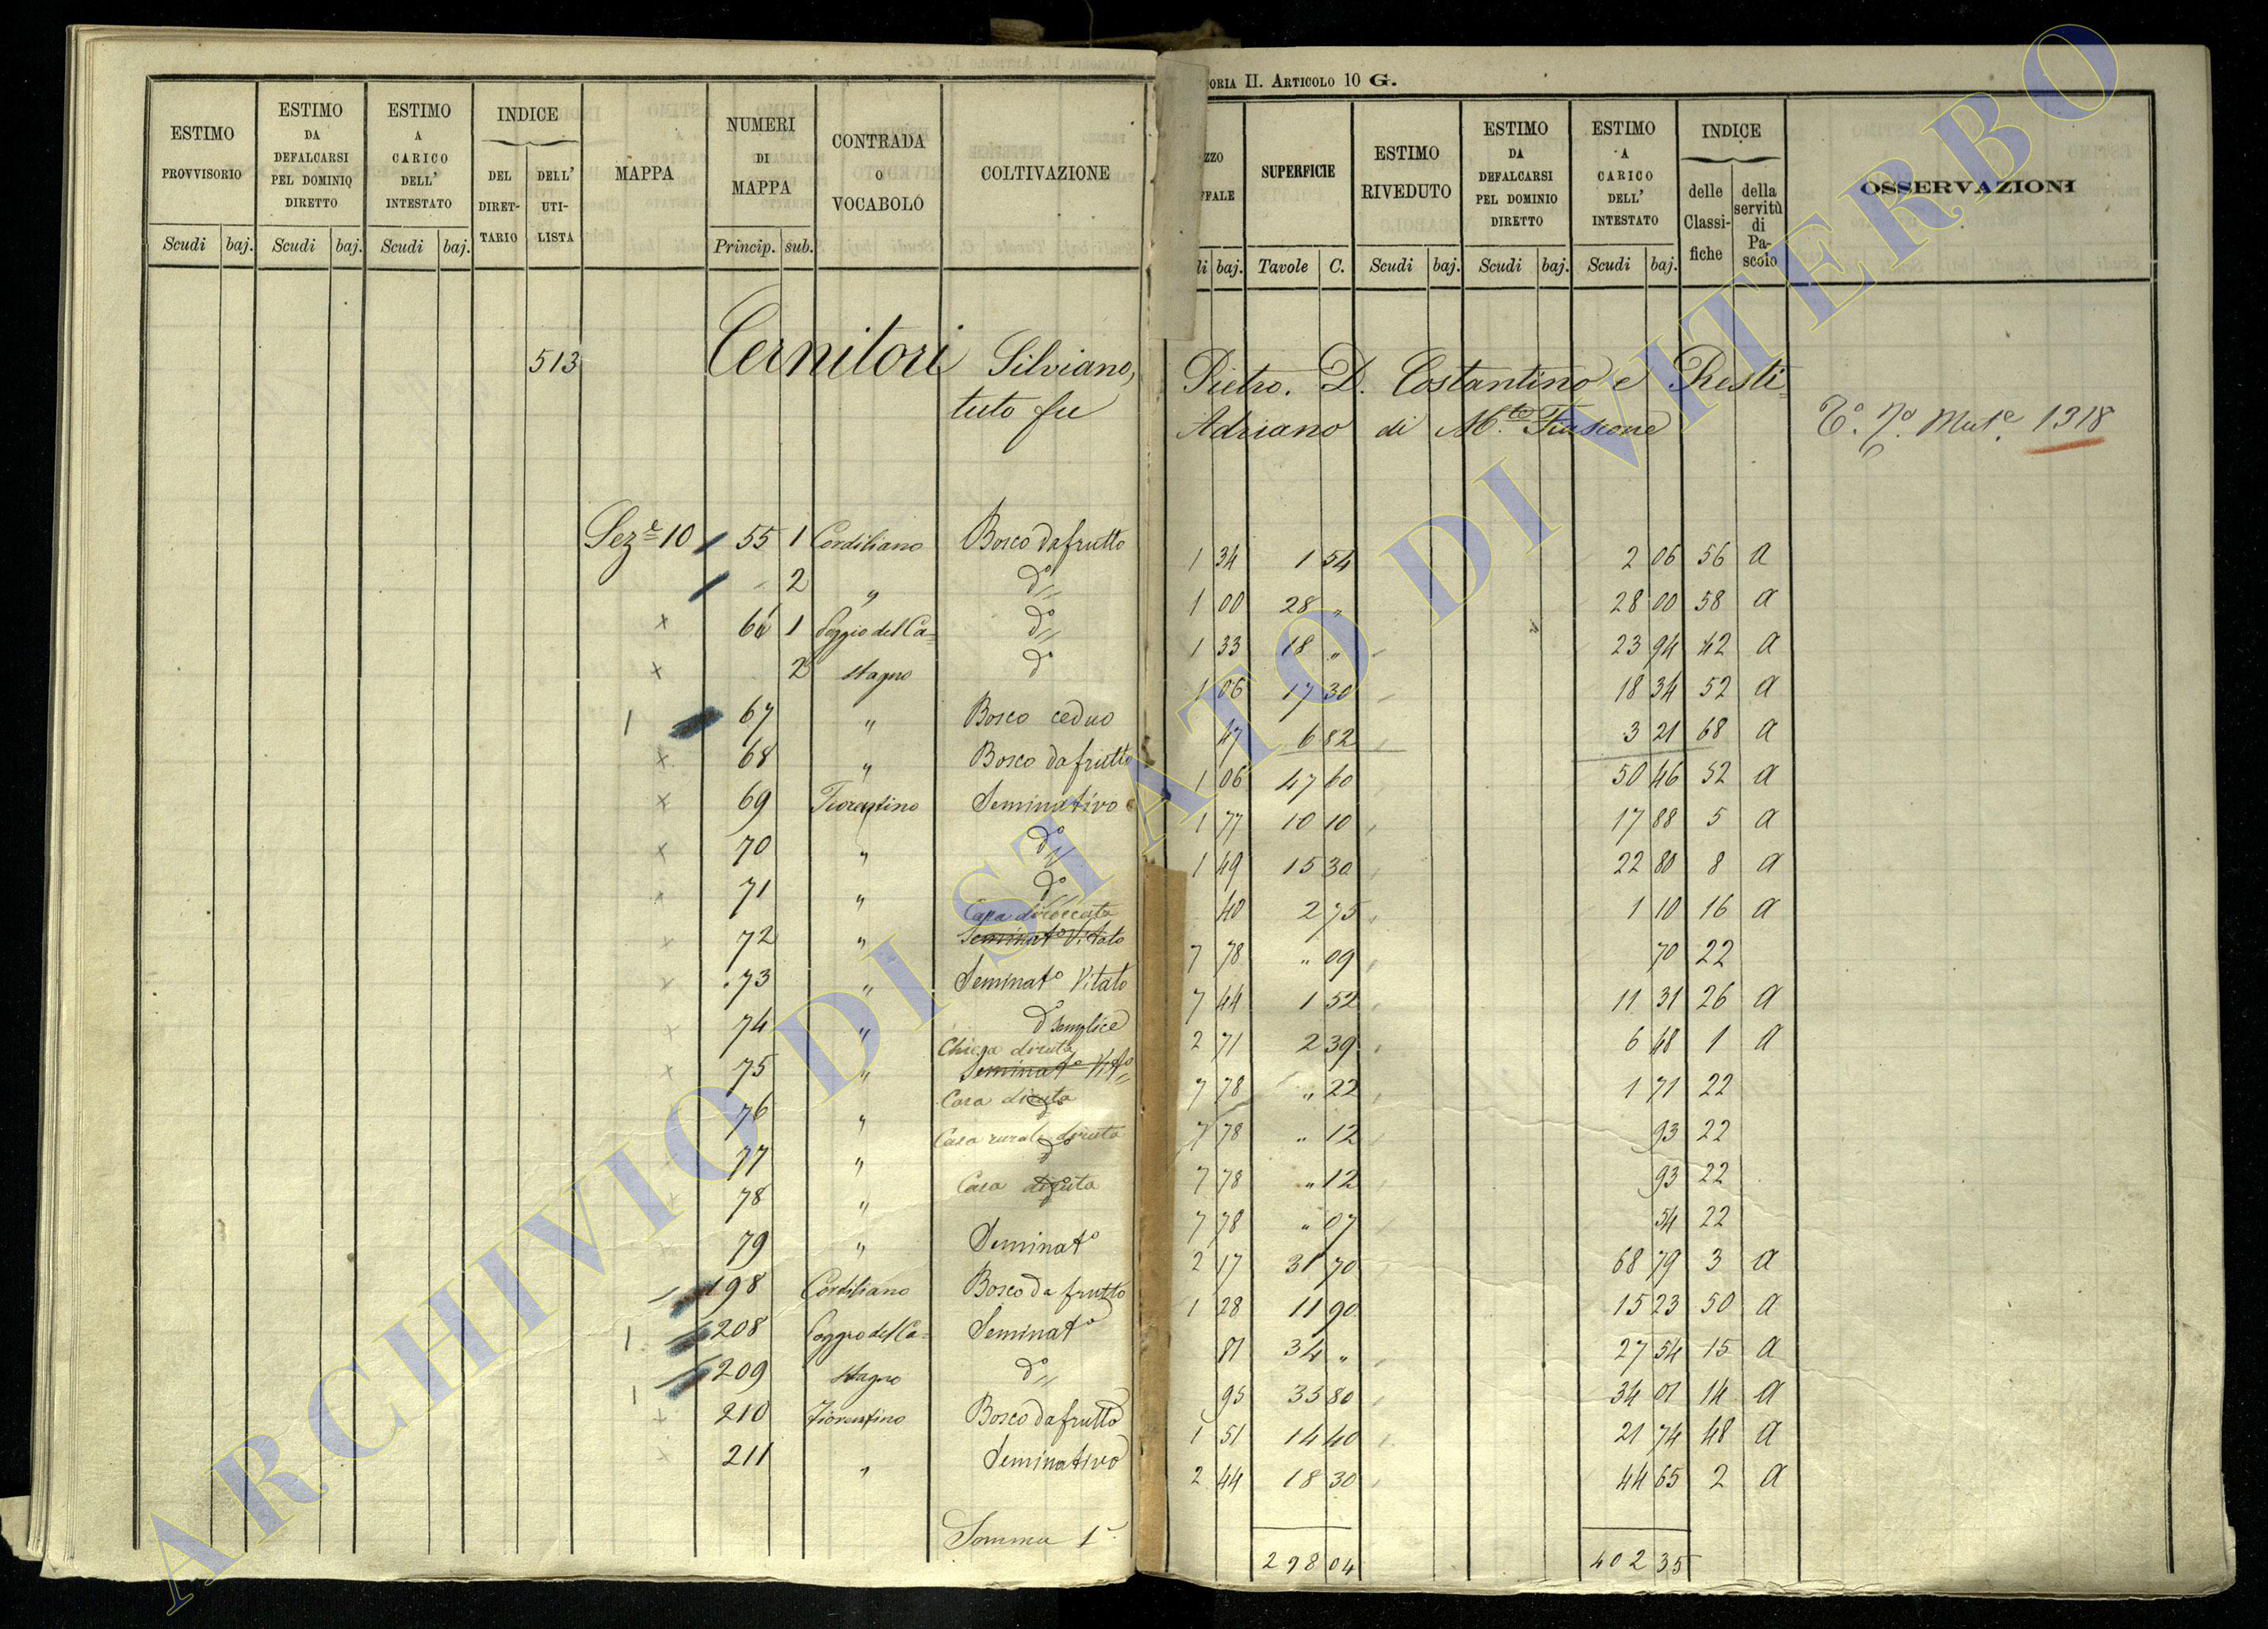 ORIA II. ARTICOLO 10 G.
ESTIMO PROVVISORIO | ESTIMO DA DEFALCARSI PEL DOMINIO DIRETTO | ESTIMO A CARICO DELL' INTESTATO | INDICE DEL DIRETTARIO | DELL' UTILISTA | MAPPA | NUMERI DI MAPPA | CONTRADA O VOCABOLO | COLTIVAZIONE | ZZO | FALE | SUPERFICIE | ESTIMO RIVEDUTO | ESTIMO DA DEFALCARSI PEL DOMINIO DIRETTO | ESTIMO A CARICO DELL' INTESTATO | INDICE delle Classifiche | della servitù di Pascolo | OSSERVAZIONI
Scudi baj. Scudi baj. Scudi baj. Princip. sub. di baj. Tavole C. Scudi baj. Scudi baj. Scudi baj.
513 Cernitori Silviano, Pietro. D. Costantino e Resti=
tuto fu Adriano di M.te Fiascone
Mut.e 1318
Sez.e 10 55 1 Cordiliano Bosco da frutto 1 34 1 54 2 06 56 a
2 " d.o 1 00 28 " 28 00 58 a
66 1 Poggio del Ca= d.o 1 33 18 " 23 94 42 a
2 stagno d.o 1 06 17 30 18 34 52 a
1 67 " Bosco ceduo 47 6 82 3 21 68 a
68 " Bosco da frutto 1 06 47 60 50 46 52 a
69 Fiorentino Seminativo 1 77 10 10 17 88 5 a
70 " d.o 1 49 15 30 22 80 8 a
71 " d.o 40 2 75 1 10 16 a
Casa diroccata
72 " Seminat.o Vitato 7 78 " 09 70 22
73 " Seminat.o Vitato 7 44 1 52 11 31 26 a
74 " d.o semplice 2 71 2 39 6 48 1 a
Chiesa diruta
75 " Seminat.o Vit.o 7 78 " 22 1 71 22
76 " Casa diruta 7 78 " 12 93 22
Casa rurale diruta
77 " d.o 7 78 " 12 93 22
78 " Casa diruta 7 78 " 07 54 22
79 " Seminat.o 2 17 31 70 68 79 3 a
198 Cordiliano Bosco da frutto 1 28 11 90 15 23 50 a
1 208 Poggio del Ca= Seminat.o 81 34 " 27 54 15 a
1 209 stagno d.o 95 33 80 34 01 14 a
210 Fiorentino Bosco da frutto 1 51 14 40 21 74 48 a
211 " Seminativo 2 44 18 30 44 65 2 a
Somma 1.a 298 04 402 35
ARCHIVIO DI STATO DI VITERBO